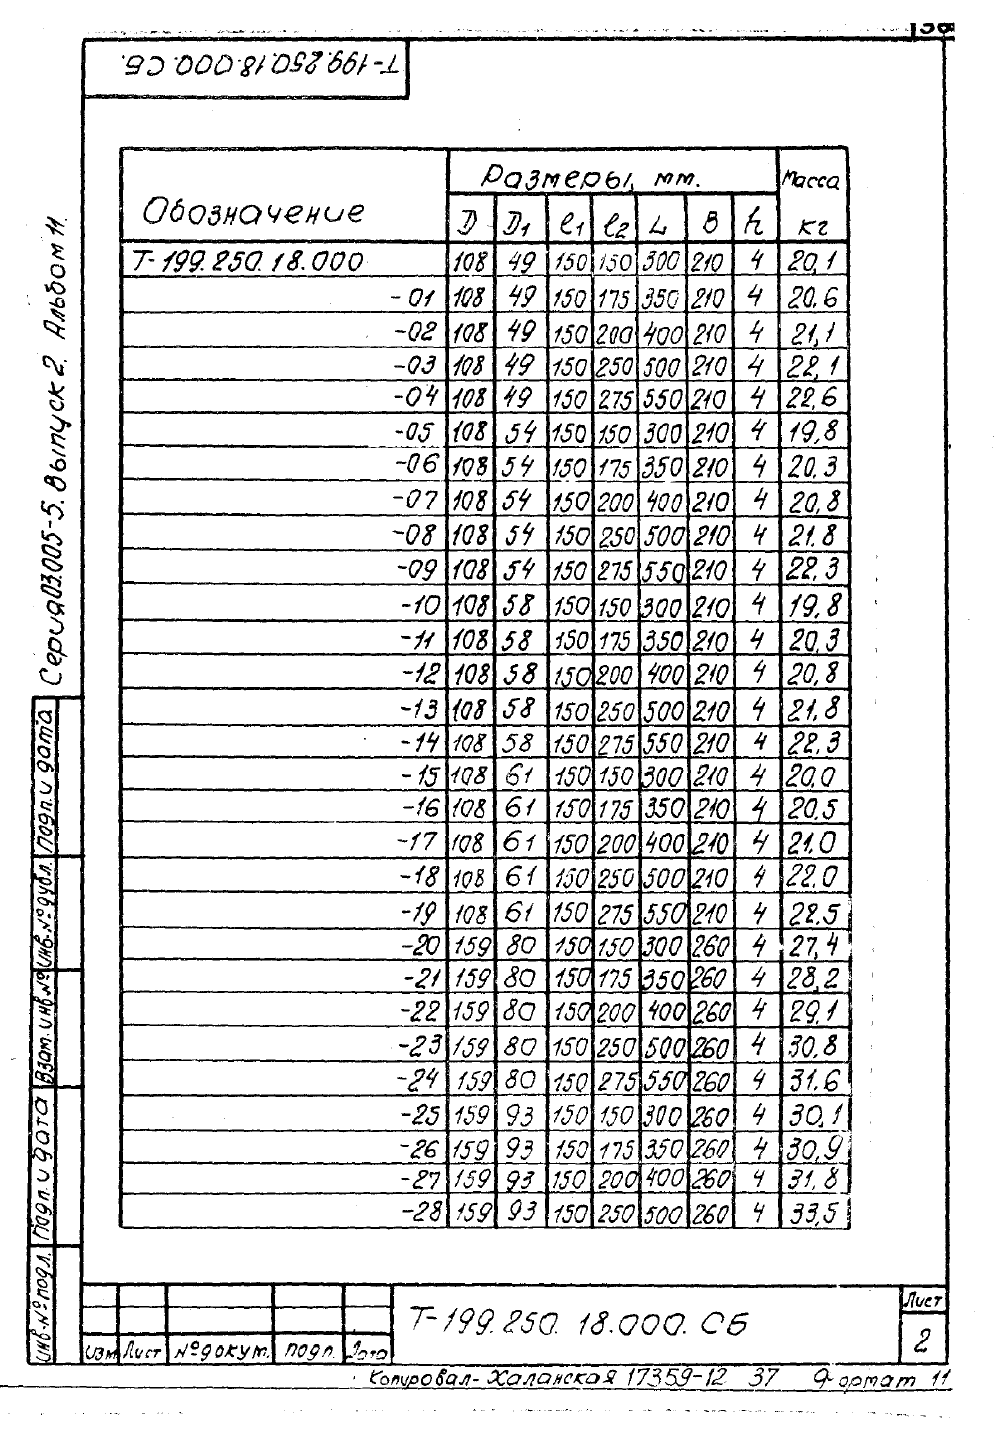 Т-199.250.18.000.СБ.
Серия 03.005-5. Выпуск 2. Альбом 11.
Обозначение Размеры, мм. Масса кг
D D1 ℓ1 ℓ2 L B h
Т-199.250.18.000 108 49 150 150 300 210 4 20,1
-01 108 49 150 175 350 210 4 20.6
-02 108 49 150 200 400 210 4 21,1
-03 108 49 150 250 500 210 4 22,1
-04 108 49 150 275 550 210 4 22,6
-05 108 54 150 150 300 210 4 19,8
-06 108 54 150 175 350 210 4 20.3
-07 108 54 150 200 400 210 4 20,8
-08 108 54 150 250 500 210 4 21.8
-09 108 54 150 275 550 210 4 22,3
-10 108 58 150 150 300 210 4 19,8
-11 108 58 150 175 350 210 4 20,3
-12 108 58 150 200 400 210 4 20,8
-13 108 58 150 250 500 210 4 21.8
-14 108 58 150 275 550 210 4 22.3
-15 108 61 150 150 300 210 4 20,0
-16 108 61 150 175 350 210 4 20.5
-17 108 61 150 200 400 210 4 21.0
-18 108 61 150 250 500 210 4 22.0
-19 108 61 150 275 550 210 4 22.5
-20 159 80 150 150 300 260 4 27,4
-21 159 80 150 175 350 260 4 28,2
-22 159 80 150 200 400 260 4 29.1
-23 159 80 150 250 500 260 4 30.8
-24 159 80 150 275 550 260 4 31.6
-25 159 93 150 150 300 260 4 30,1
-26 159 93 150 175 350 260 4 30,9
-27 159 93 150 200 400 260 4 31.8
-28 159 93 150 250 500 260 4 33,5
Инв.№подл. Подп. и дата Взам. инв.№ Инв.№дубл. Подп. и дата
Изм Лист №докум. подп. Дата
Т-199.250.18.000.СБ
Лист
2
Копировал- Халанская 17359-12 37 Формат 11